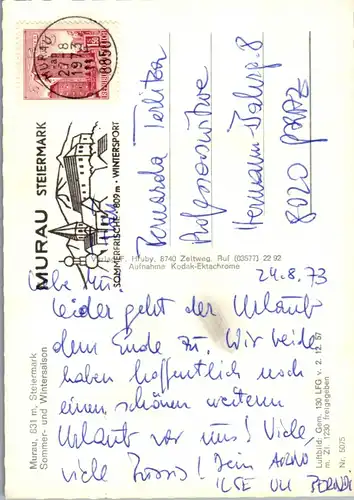 MURAU
23.-8
1973
8850
MURAU STEIERMARK
SOMMERFRISCHE 809 m · WINTERSPORT
Hermann-
8020 GRAZ
Murau, 831 m, Steiermark
Sommer- und Wintersaison
Verlag F. Hruby, 8740 Zeltweg, Ruf (03577) 22 92
Aufnahme Kodak-Ektachrome
Luftbild: Gem. 130 LFG v. 2. 12. 57
m. Zl. 1230 freigegeben
Nr. 5075
24.8.73
Liebe
leider geht der Urlaub
dem Ende zu. Wir beide
haben hoffentlich noch
einen schönen weiteren
Urlaub vor uns! Viele,
viele Bussis! Dein ARNO
ILSE ULI